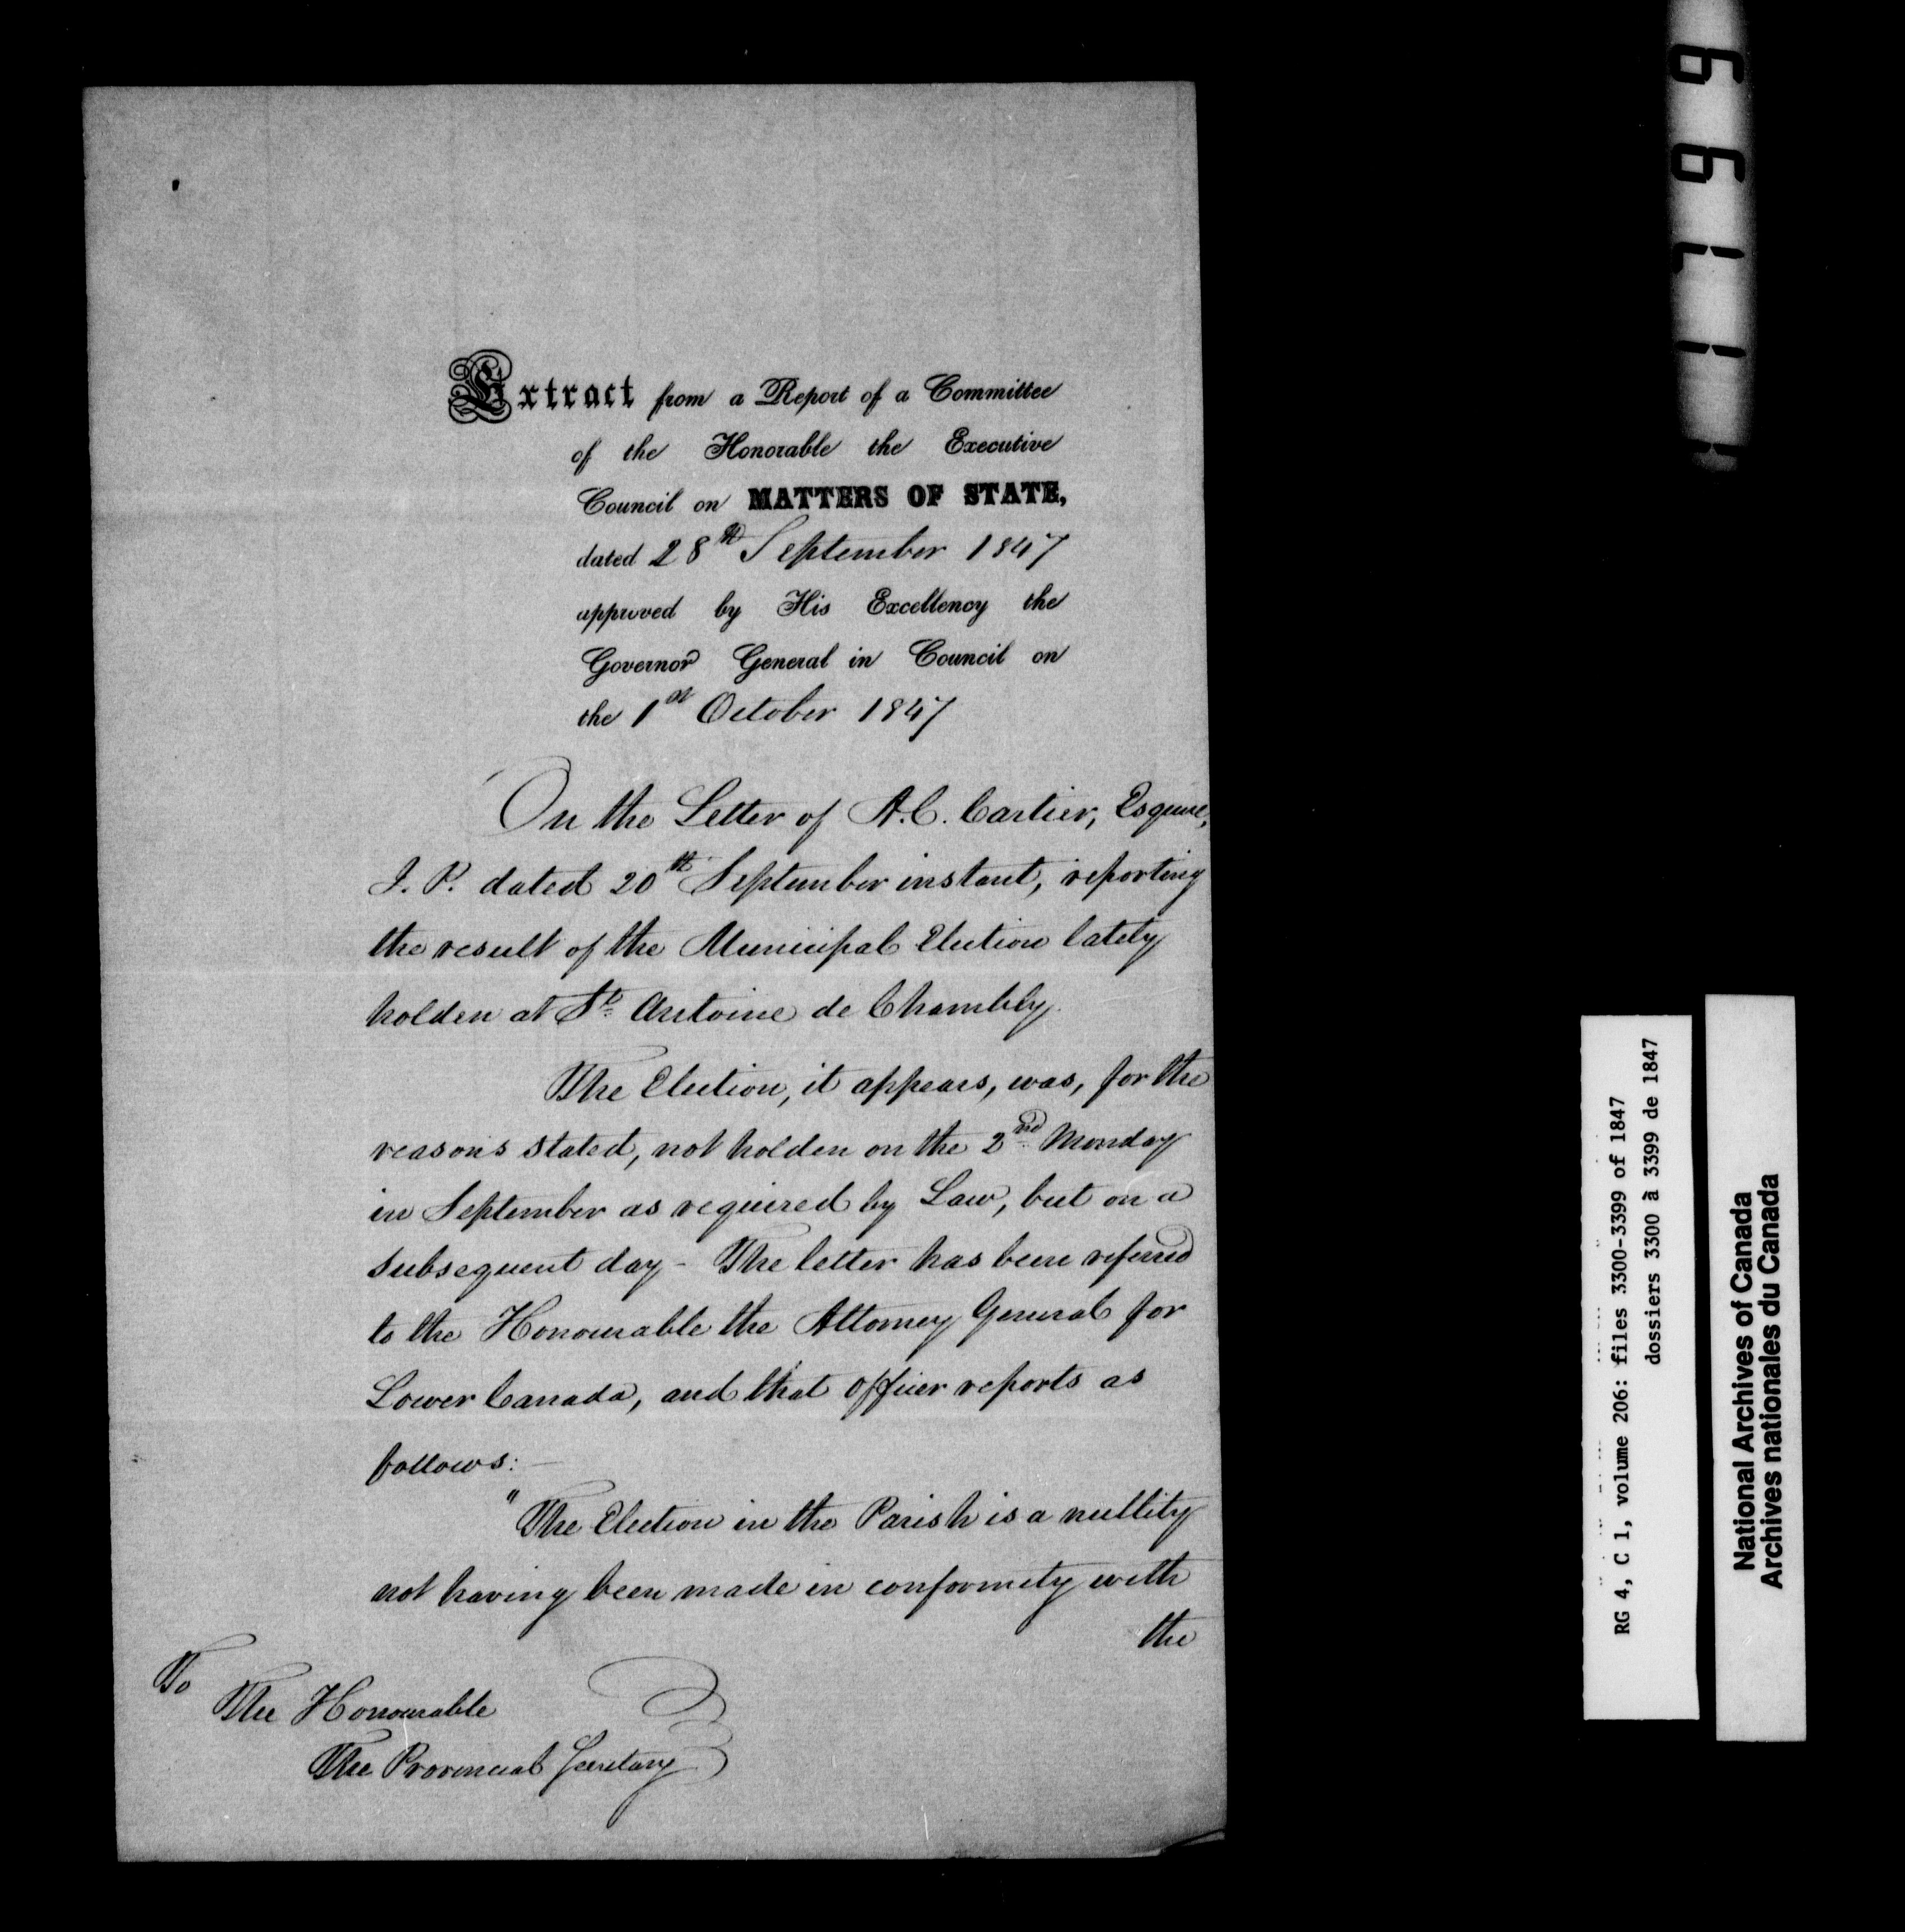 Extract from a Report of a Committee
of the Honorable the Executive
Council on MATTERS OF STATE,
dated 28th September 1847
approved by His Excellency the
Governor General in Council on
the 1st October 1847
On the Letter of A.C. Cartier, Esquire,
J. P. dated 20th September instant, reporting
the result of the Municipal Election lately
holden at St. Antoine de Chambly.
The Election, it appears, was, for the
reasons stated, not holden on the 2nd Monday
in September as required by Law, but on a
subsequent day - The letter has been referred
to the Honourable the Attorney General for
Lower Canada, and that officer reports as
follows: —
"The Election in the Parish is a nullity
not having been made in conformity with
the
To
The Honourable
The Provincial Secretary
RG 4, C 1, volume 206: files 3300-3399 of 1847
dossiers 3300 à 3399 de 1847
National Archives of Canada
Archives nationales du Canada